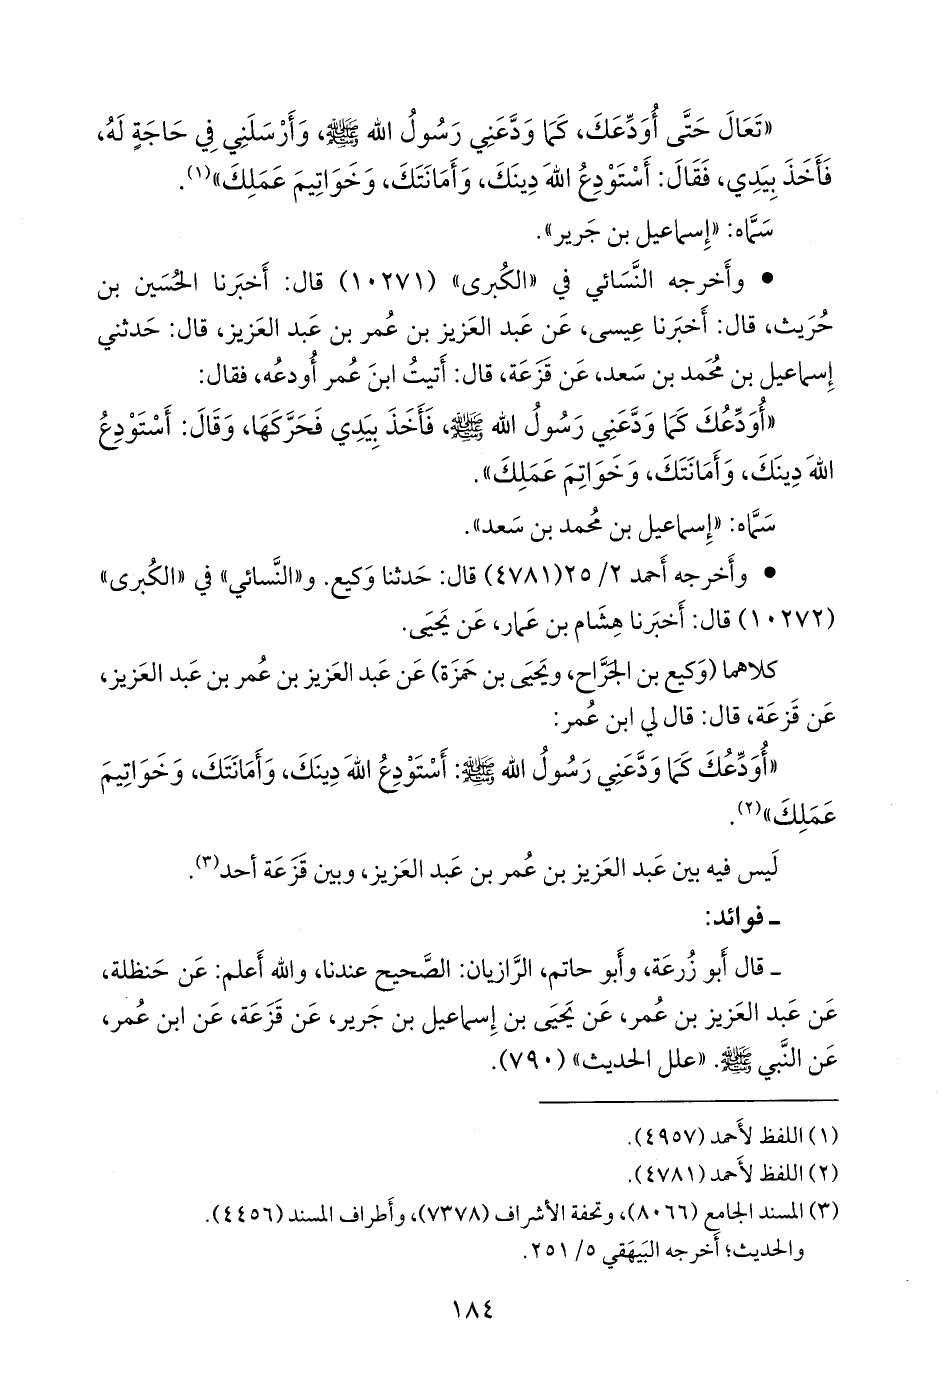 «تَعَالَ حَتَّى أُوَدِّعَكَ، كَمَا وَدَّعَنِي رَسُولُ الله ﷺ، وَأَرْسَلَنِي فِي حَاجَةٍ لَهُ،
فَأَخَذَ بِيَدِي، فَقَالَ: أَسْتَوْدِعُ اللهَ دِينَكَ، وَأَمَانَتَكَ، وَخَوَاتِيمَ عَمَلِكَ»(١).
سَمَّاه: «إِسماعيل بن جَرير».
• وأَخرجه النَّسَائي في «الكُبرى» (١٠٢٧١) قال: أَخبَرنا الحُسَين بن
حُرَيث، قال: أَخبَرنا عِيسى، عَن عَبد العَزيز بن عُمر بن عَبد العَزيز، قال: حَدثني
إِسماعيل بن مُحَمد بن سَعد، عَن قَزَعَة، قال: أَتيتُ ابنَ عُمر أُودعُه، فقال:
«أُوَدِّعُكَ كَمَا وَدَّعَنِي رَسُولُ الله ﷺ، فَأَخَذَ بِيَدِي فَحَرَّكَهَا، وَقَالَ: أَسْتَوْدِعُ
اللهَ دِينَكَ، وَأَمَانَتَكَ، وَخَوَاتِمَ عَمَلِكَ».
سَمَّاه: «إِسماعيل بن مُحمد بن سَعد».
• وأَخرجه أَحمد ٢/ ٢٥(٤٧٨١) قال: حَدثنا وَكيع. و«النَّسائي» في «الكُبرى»
(١٠٢٧٢) قال: أَخبَرنا هِشَام بن عَمار، عَن يَحيَى.
كلاهما (وَكيع بن الجَرَّاح، ويَحيَى بن حَمزَة) عَن عَبد العَزيز بن عُمر بن عَبد العَزيز،
عَن قَزعَة، قال: قال لي ابن عُمر:
«أُوَدِّعُكَ كَمَا وَدَّعَنِي رَسُولُ الله ﷺ: أَسْتَوْدِعُ اللهَ دِينَكَ، وَأَمَانَتَكَ، وَخَوَاتِيمَ
عَمَلِكَ»(٢).
لَيس فيه بين عَبد العَزيز بن عُمر بن عَبد العَزيز، وبين قَزَعَة أحد(٣).
ـ فوائد:
ـ قال أَبو زُرعَة، وأَبو حاتم، الرَّازيان: الصَّحيح عندنا، والله أَعلم: عَن حَنظلة،
عَن عَبد العَزيز بن عُمر، عَن يَحيَى بن إِسماعيل بن جَرير، عَن قَزَعَة، عَن ابن عُمر،
عَن النَّبي ﷺ. «علل الحديث» (٧٩٠).
(١) اللفظ لأَحمد (٤٩٥٧).
(٢) اللفظ لأحمد (٤٧٨١).
(٣) المسند الجامع (٨٠٦٦)، وتحفة الأشراف (٧٣٧٨)، وأَطراف المسند (٤٤٥٦).
والحديث؛ أَخرجه البَيهَقي ٥/ ٢٥١.
١٨٤